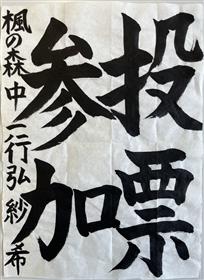 投票
参加
楓の森中 二 行弘紗希